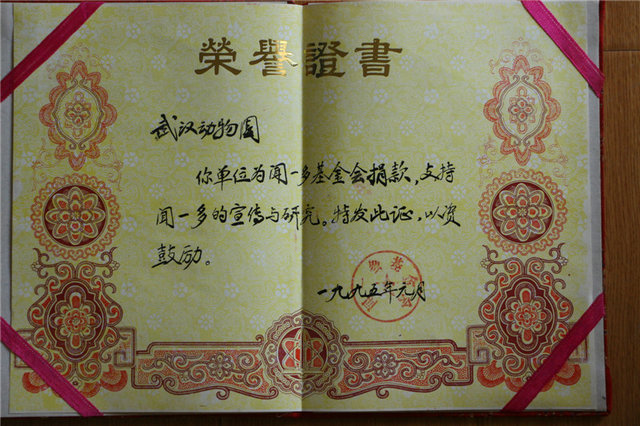 榮譽證書
武汉动物园
你单位为闻一多基金会捐款，支持
闻一多的宣传与研究。特发此证，以资
鼓励。
一九九五年元月